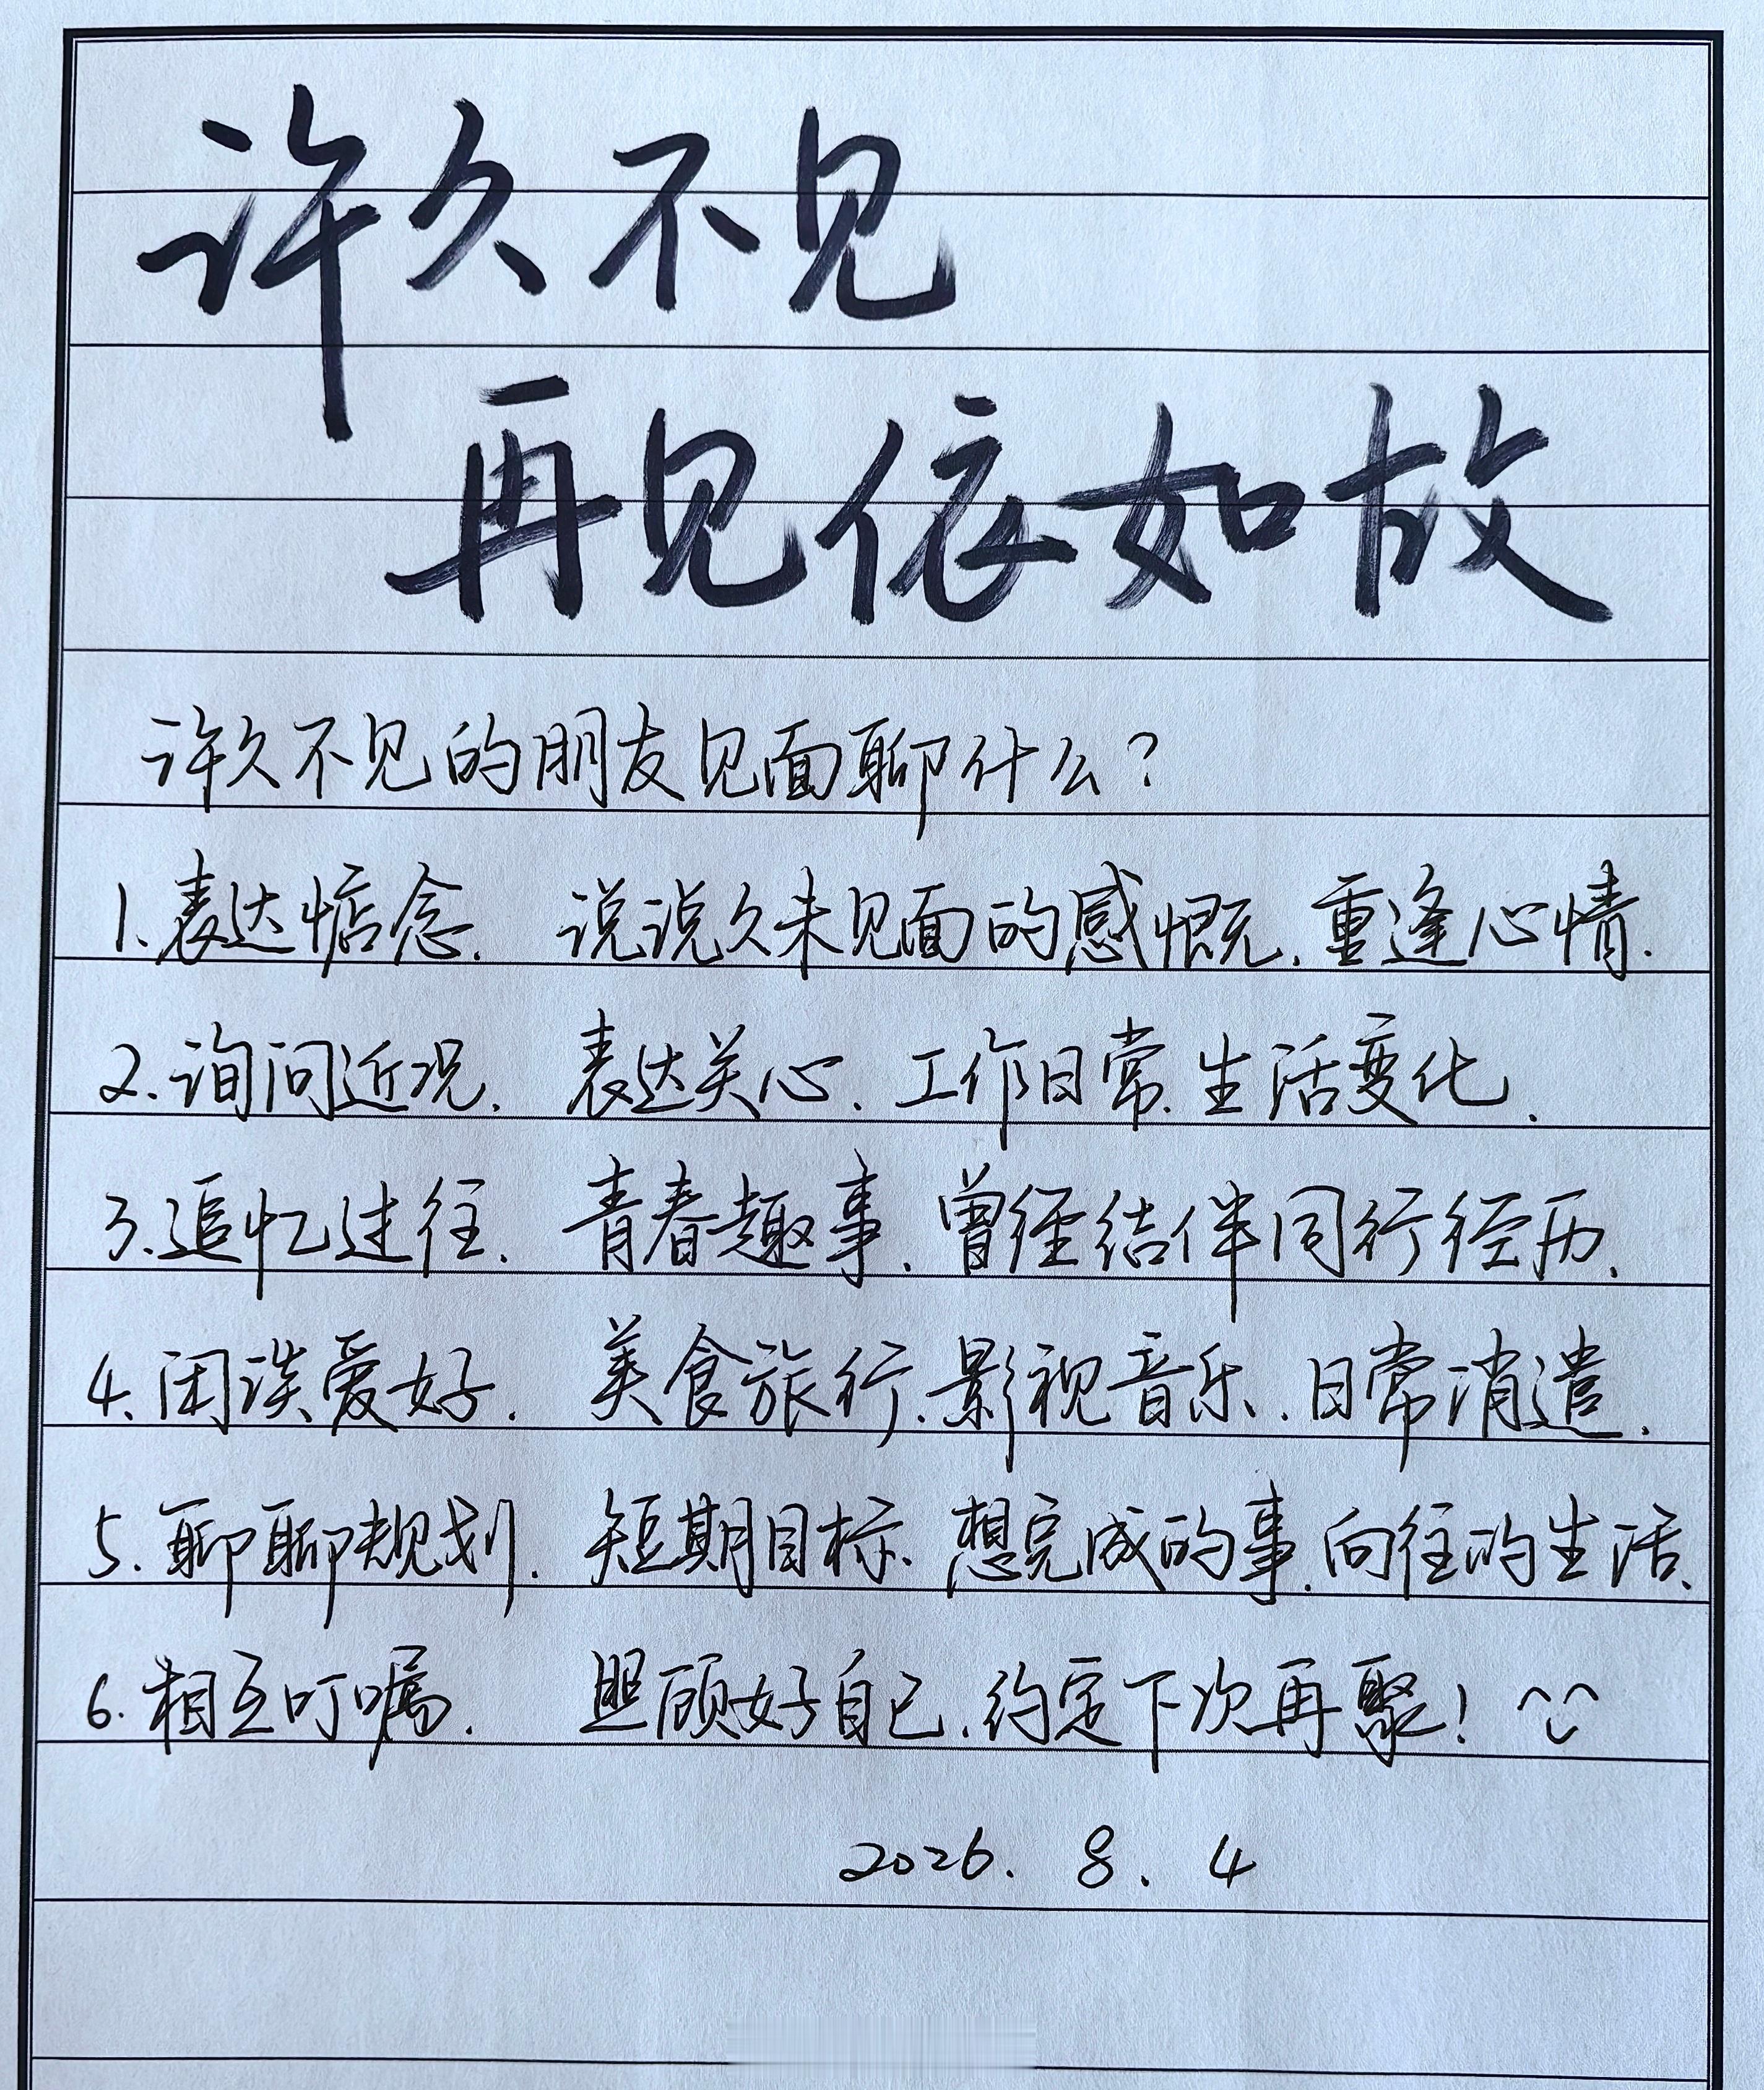 许久不见
再见依如故
许久不见的朋友见面聊什么？
1.表达惦念. 说说久未见面的感慨.重逢心情.
2.询问近况. 表达关心.工作日常.生活变化.
3.追忆过往. 青春趣事.曾经结伴同行经历.
4.闲谈爱好. 美食旅行.影视音乐.日常消遣.
5.聊聊规划. 短期目标.想完成的事.向往的生活.
6.相互叮嘱. 照顾好自己.约定下次再聚!
2026.8.4